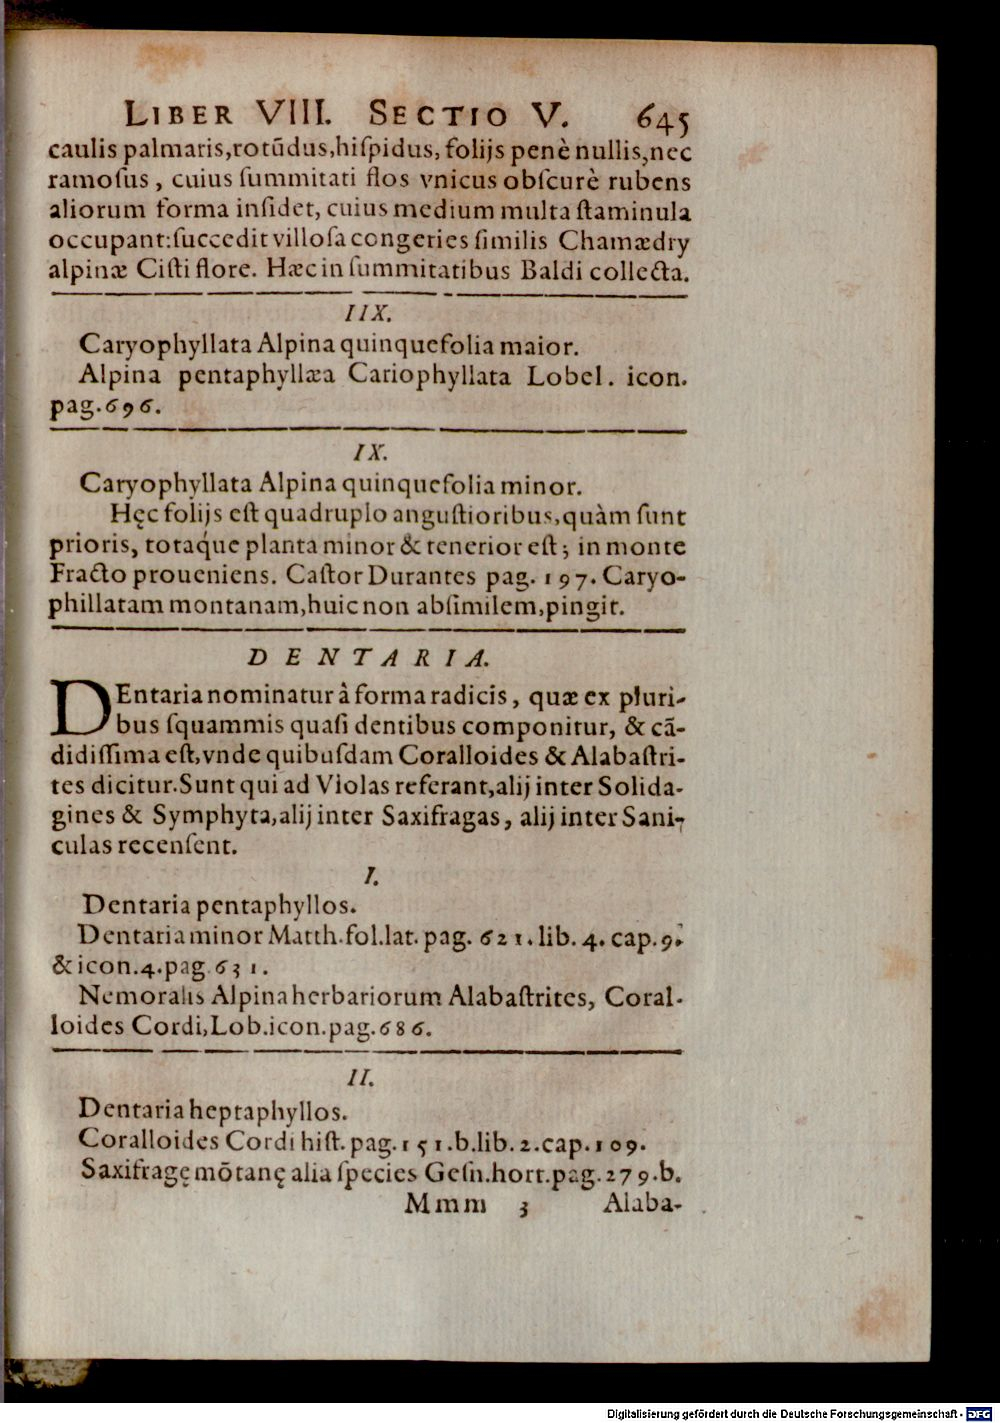 LIBER VIII. SECTIO V. 645
caulis palmaris,rotũdus,hiſpidus, folijs penè nullis,nec
ramoſus, cuius ſummitati flos vnicus obſcurè rubens
aliorum forma inſidet, cuius medium multa ſtaminula
occupant:ſuccedit villoſa congeries ſimilis Chamædry
alpinæ Ciſti flore. Hæc in ſummitatibus Baldi collecta.
IIX.
Caryophyllata Alpina quinquefolia maior.
Alpina pentaphyllæa Cariophyllata Lobel. icon.
pag.696.
IX.
Caryophyllata Alpina quinquefolia minor.
Hęc folijs eſt quadruplo anguſtioribus,quàm ſunt
prioris, totaq́ue planta minor & tenerior eſt; in monte
Fracto proueniens. Caſtor Durantes pag. 197. Caryo-
phillatam montanam,huic non abſimilem,pingit.
DENTARIA.
DEntaria nominatur à forma radicis, quæ ex pluri-
bus ſquammis quaſi dentibus componitur, & cã-
didiſſima eſt,vnde quibuſdam Coralloides & Alabaſtri-
tes dicitur.Sunt qui ad Violas referant,alij inter Solida-
gines & Symphyta,alij inter Saxifragas, alij inter Sani-
culas recenſent.
I.
Dentaria pentaphyllos.
Dentaria minor Matth.fol.lat. pag. 621.lib. 4. cap.9.
& icon.4.pag.631.
Nemoralis Alpina herbariorum Alabaſtrites, Coral-
loides Cordi,Lob.icon.pag.686.
II.
Dentaria heptaphyllos.
Coralloides Cordi hiſt.pag.151.b.lib.2.cap.109.
Saxifragę mõtanę alia ſpecies Geſn.hort.pag.279.b.
Mmm 3 Alaba-
Digitalisierung gefördert durch die Deutsche Forschungsgemeinschaft - DFG